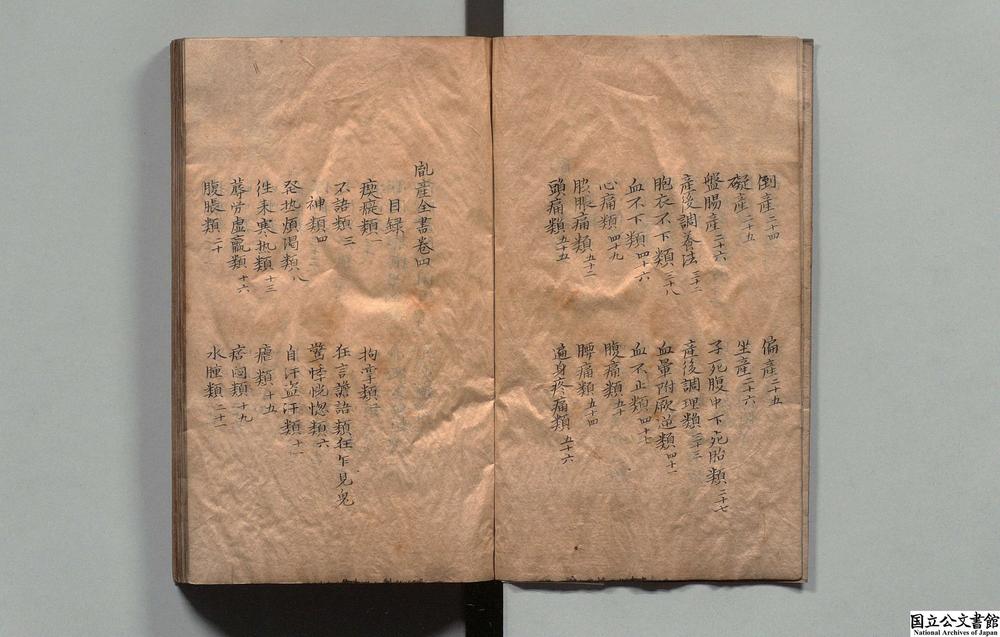 倒產二十四　偏產二十五
礙產二十五　坐產二十六
盤腸產二十六　子死腹中下死胎類二十七
產後調養法三十二　產後調理類三十三
胞衣不下類三十八　血暈附厥逆類四十一
血不下類四十六　血不止類四十七
心痛類四十九　腹痛類五十
脇脹痛類五十二　腰痛類五十四
頭痛類五十五　遍身疼痛類五十六
胤產全書卷四
目録
瘈瘲類一　拘攣類二
不語類三　狂言譫語類狂乍見鬼
神類四　驚悸恍惚類六
發热煩渴類八　自汗盗汗類十一
徃来寒热類十三　瘧類十五
蓐労虛羸類十六　痞悶類十九
腹脹類二十　水腫類二十一
国立公文書館
National Archives of Japan